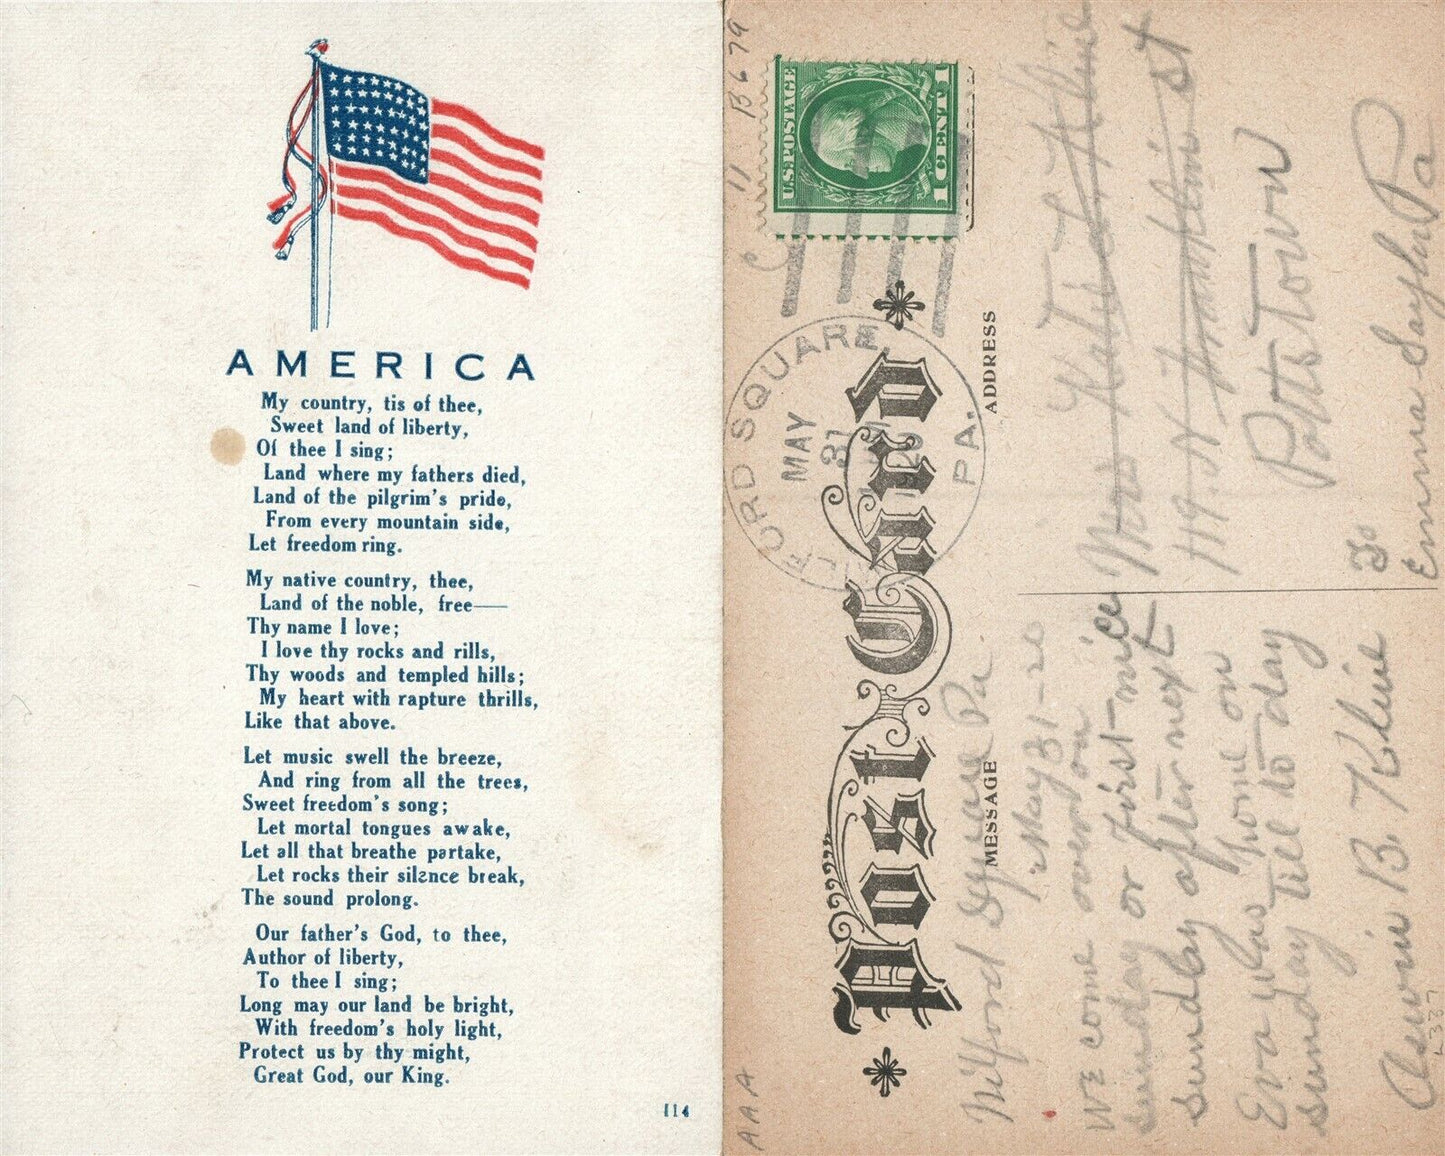 AMERICA
My country, tis of thee,
Sweet land of liberty,
Of thee I sing;
Land where my fathers died,
Land of the pilgrim's pride,
From every mountain side,
Let freedom ring.
My native country, thee,
Land of the noble, free—
Thy name I love;
I love thy rocks and rills,
Thy woods and templed hills;
My heart with rapture thrills,
Like that above.
Let music swell the breeze,
And ring from all the trees,
Sweet freedom's song;
Let mortal tongues awake,
Let all that breathe partake,
Let rocks their silence break,
The sound prolong.
Our father's God, to thee,
Author of liberty,
To thee I sing;
Long may our land be bright,
With freedom's holy light,
Protect us by thy might,
Great God, our King.
114
AAA
C 11 B 679
U.S. POSTAGE
1 CENT 1
MILFORD SQUARE, PA.
MAY
31
Post Card
MESSAGE
ADDRESS
Milford Square Pa
May 31-20
We come over on
Sunday or first-nice
Sunday after next
Eva was home on
Sunday till to day
B. Kline
Mrs Kline
119. N st
Pottstown
To
Emma Saylor Pa
L337